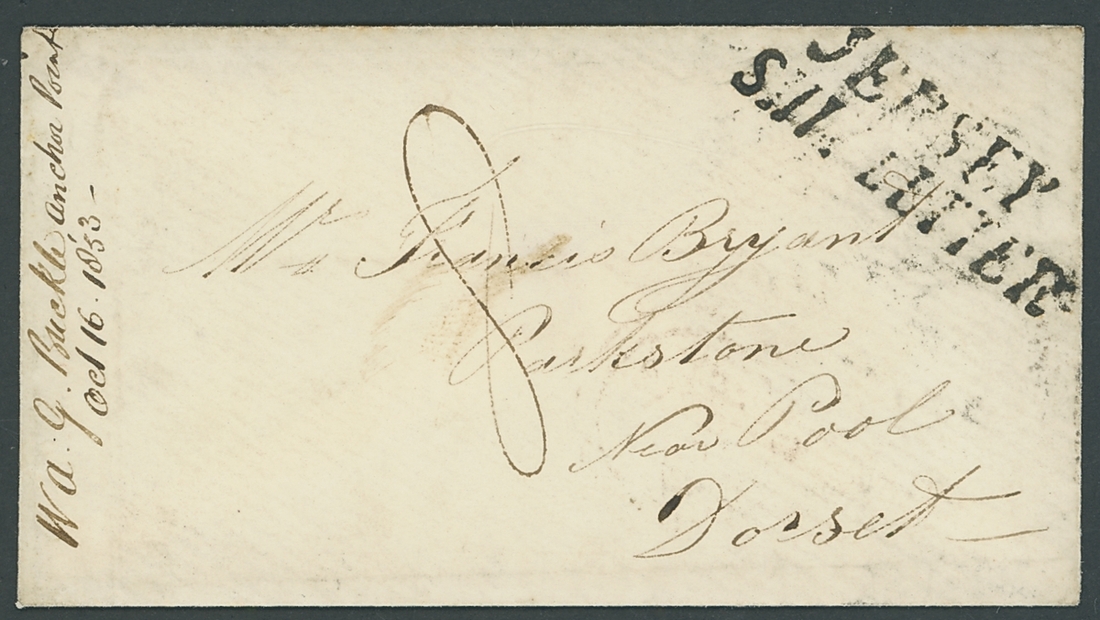 JERSEY
SHIP LETTER
8
Mrs Francis Bryant
Parkstone
Near Pool
Dorset
G. Buckle Anchor Point
Oct 16. 1853 -